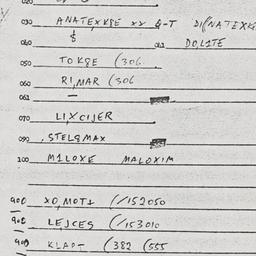 020
030 ANATEXKSE XX Q-T DI(NATEXKS
$
040 041 DOLITE
050 TOKSE (306
060 RIMAR (306
061
070 LIXCIJER
090 STELSMAX
100 MILOXE MALOXIM
900 XO,MOT1 (/152050
900 LEJCES (/153010
900 KLAPT (382 (555